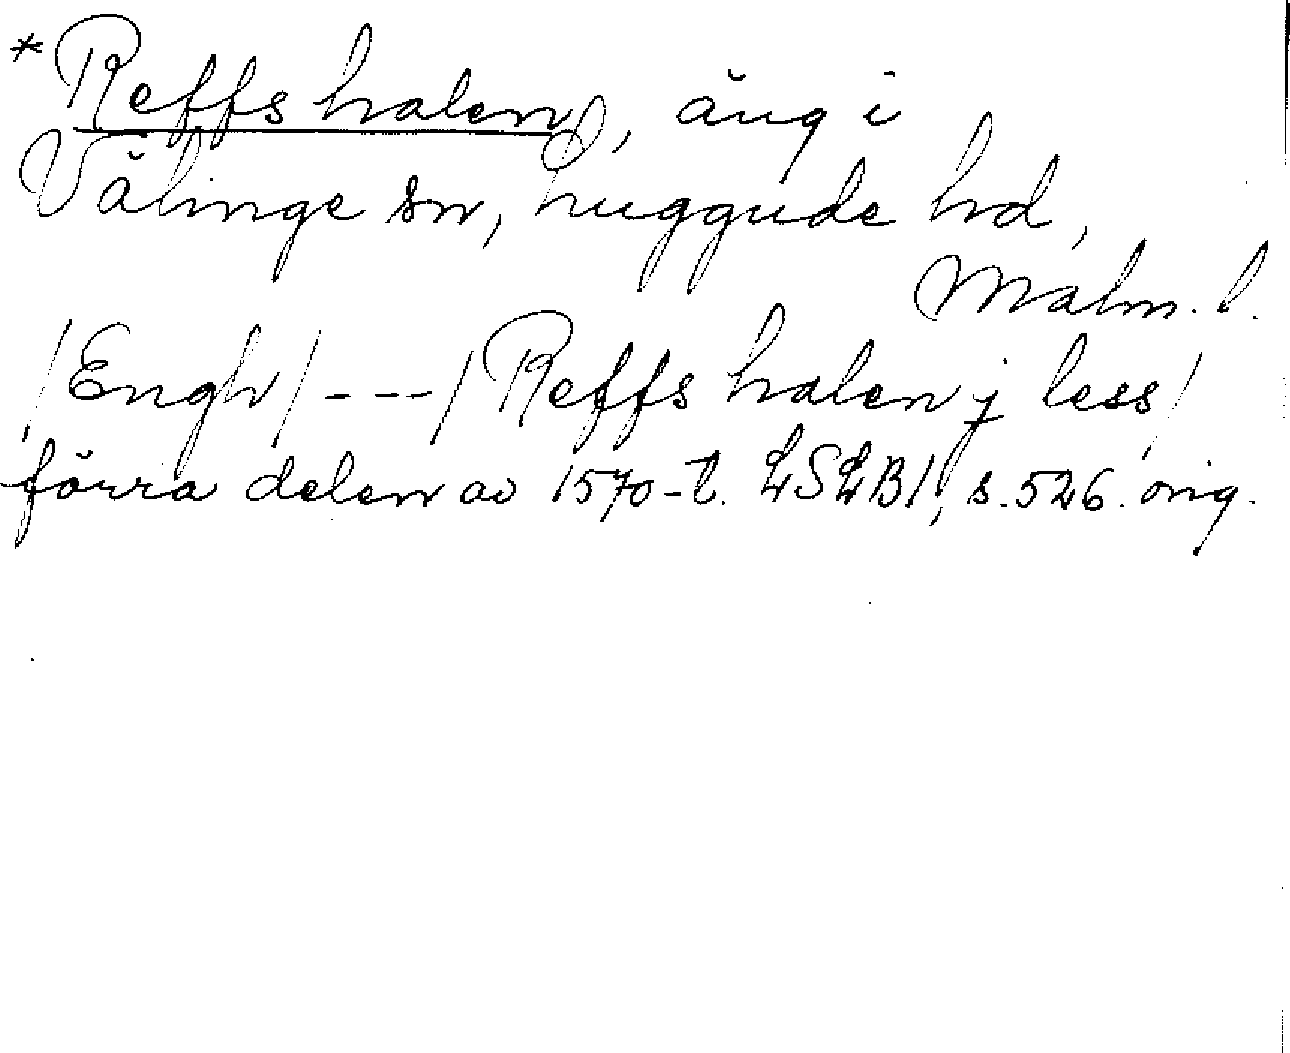 *Reffs halen, äng i
Välinge sn, Luggude hd,
Malm. l.
/Engh/ - - - / Reffs halen j less/
förra delen av 1570-t. LSLB1, s. 526. orig.